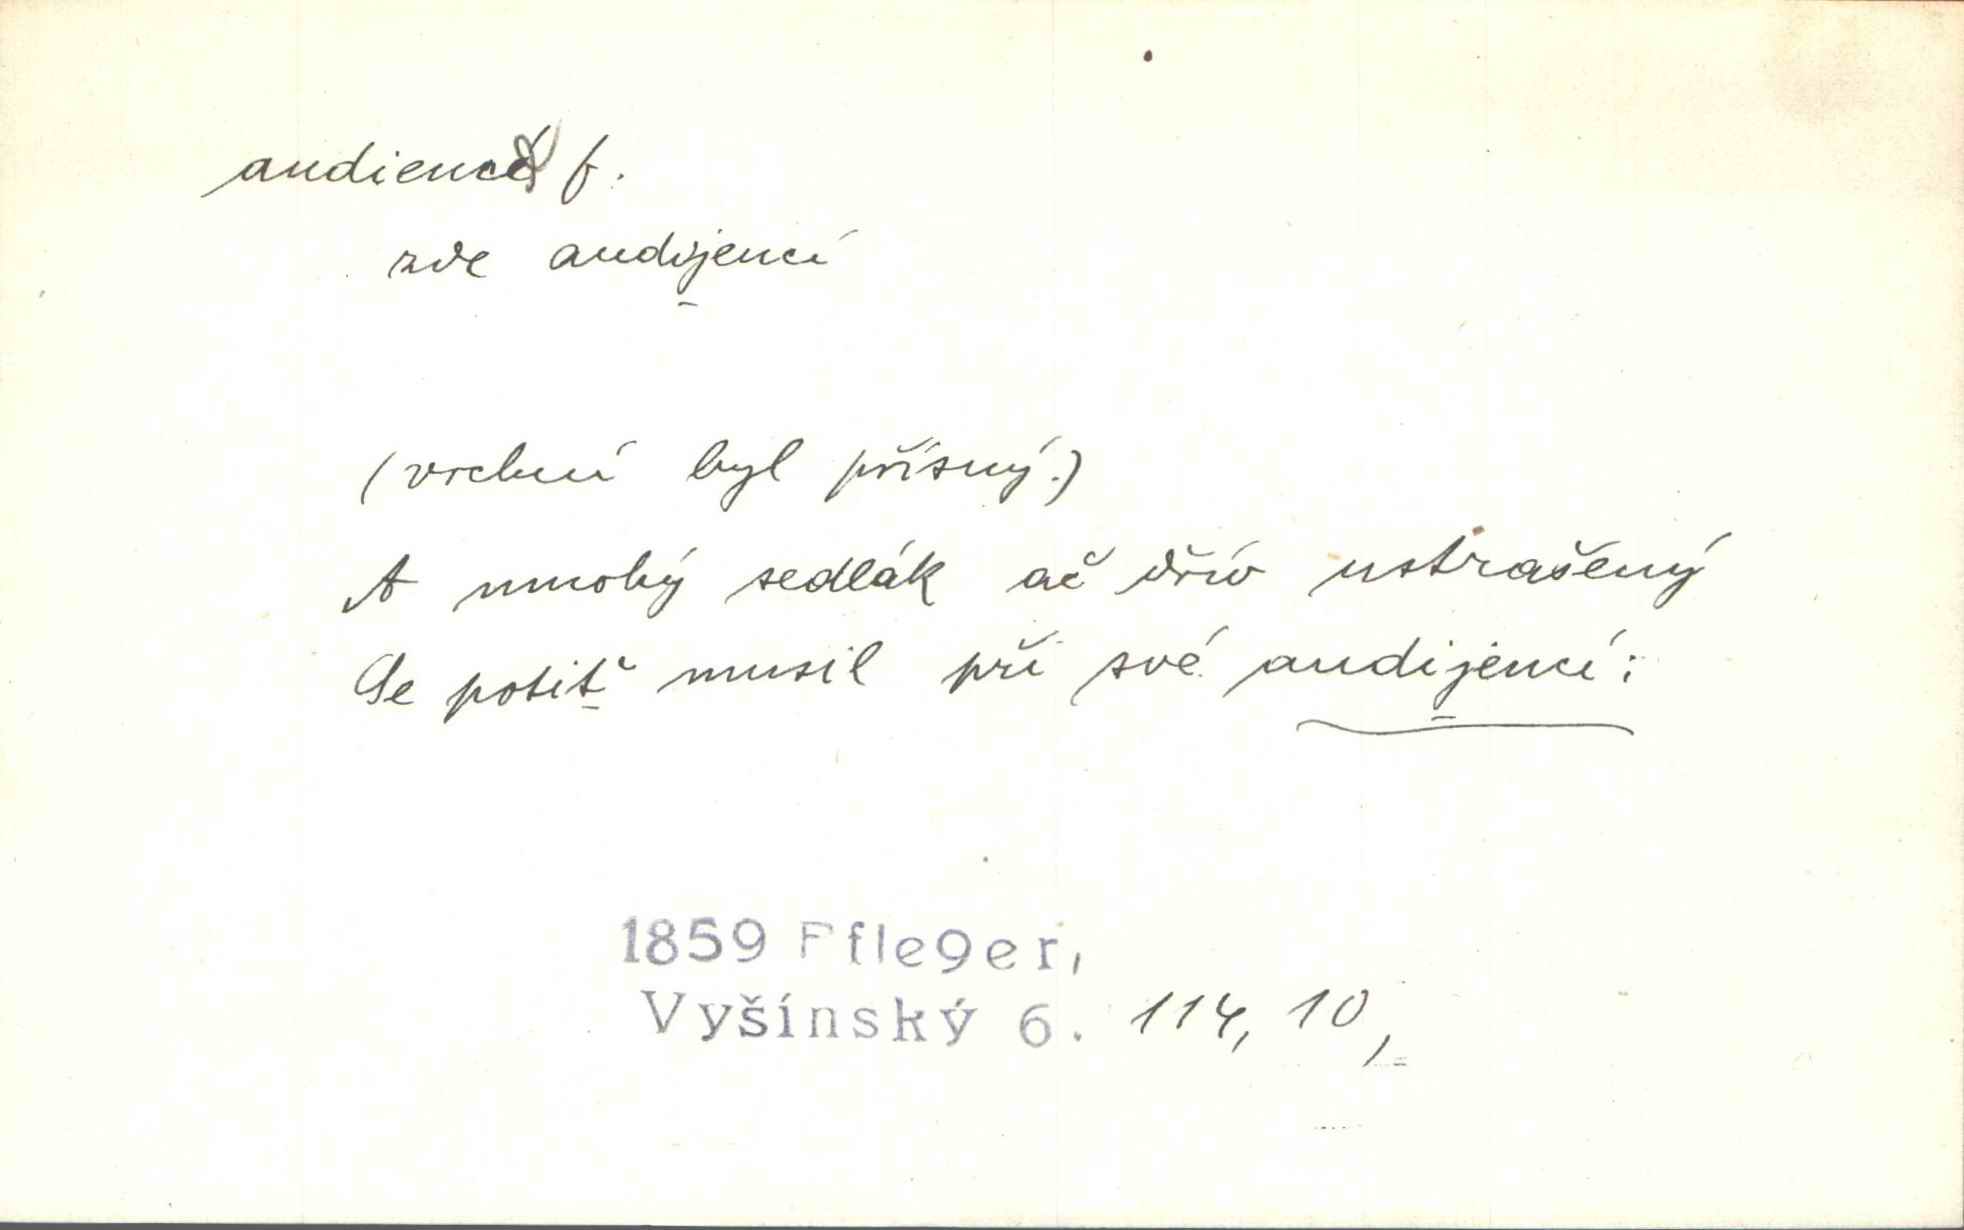 audience f.
zde audijencí
(vrchní byl přísný.)
A mnohý sedlák ač dřív ustrašený
Se potiť musil při své audijencí:
1859 Pfleger,
Vyšínský 6. 114, 10,